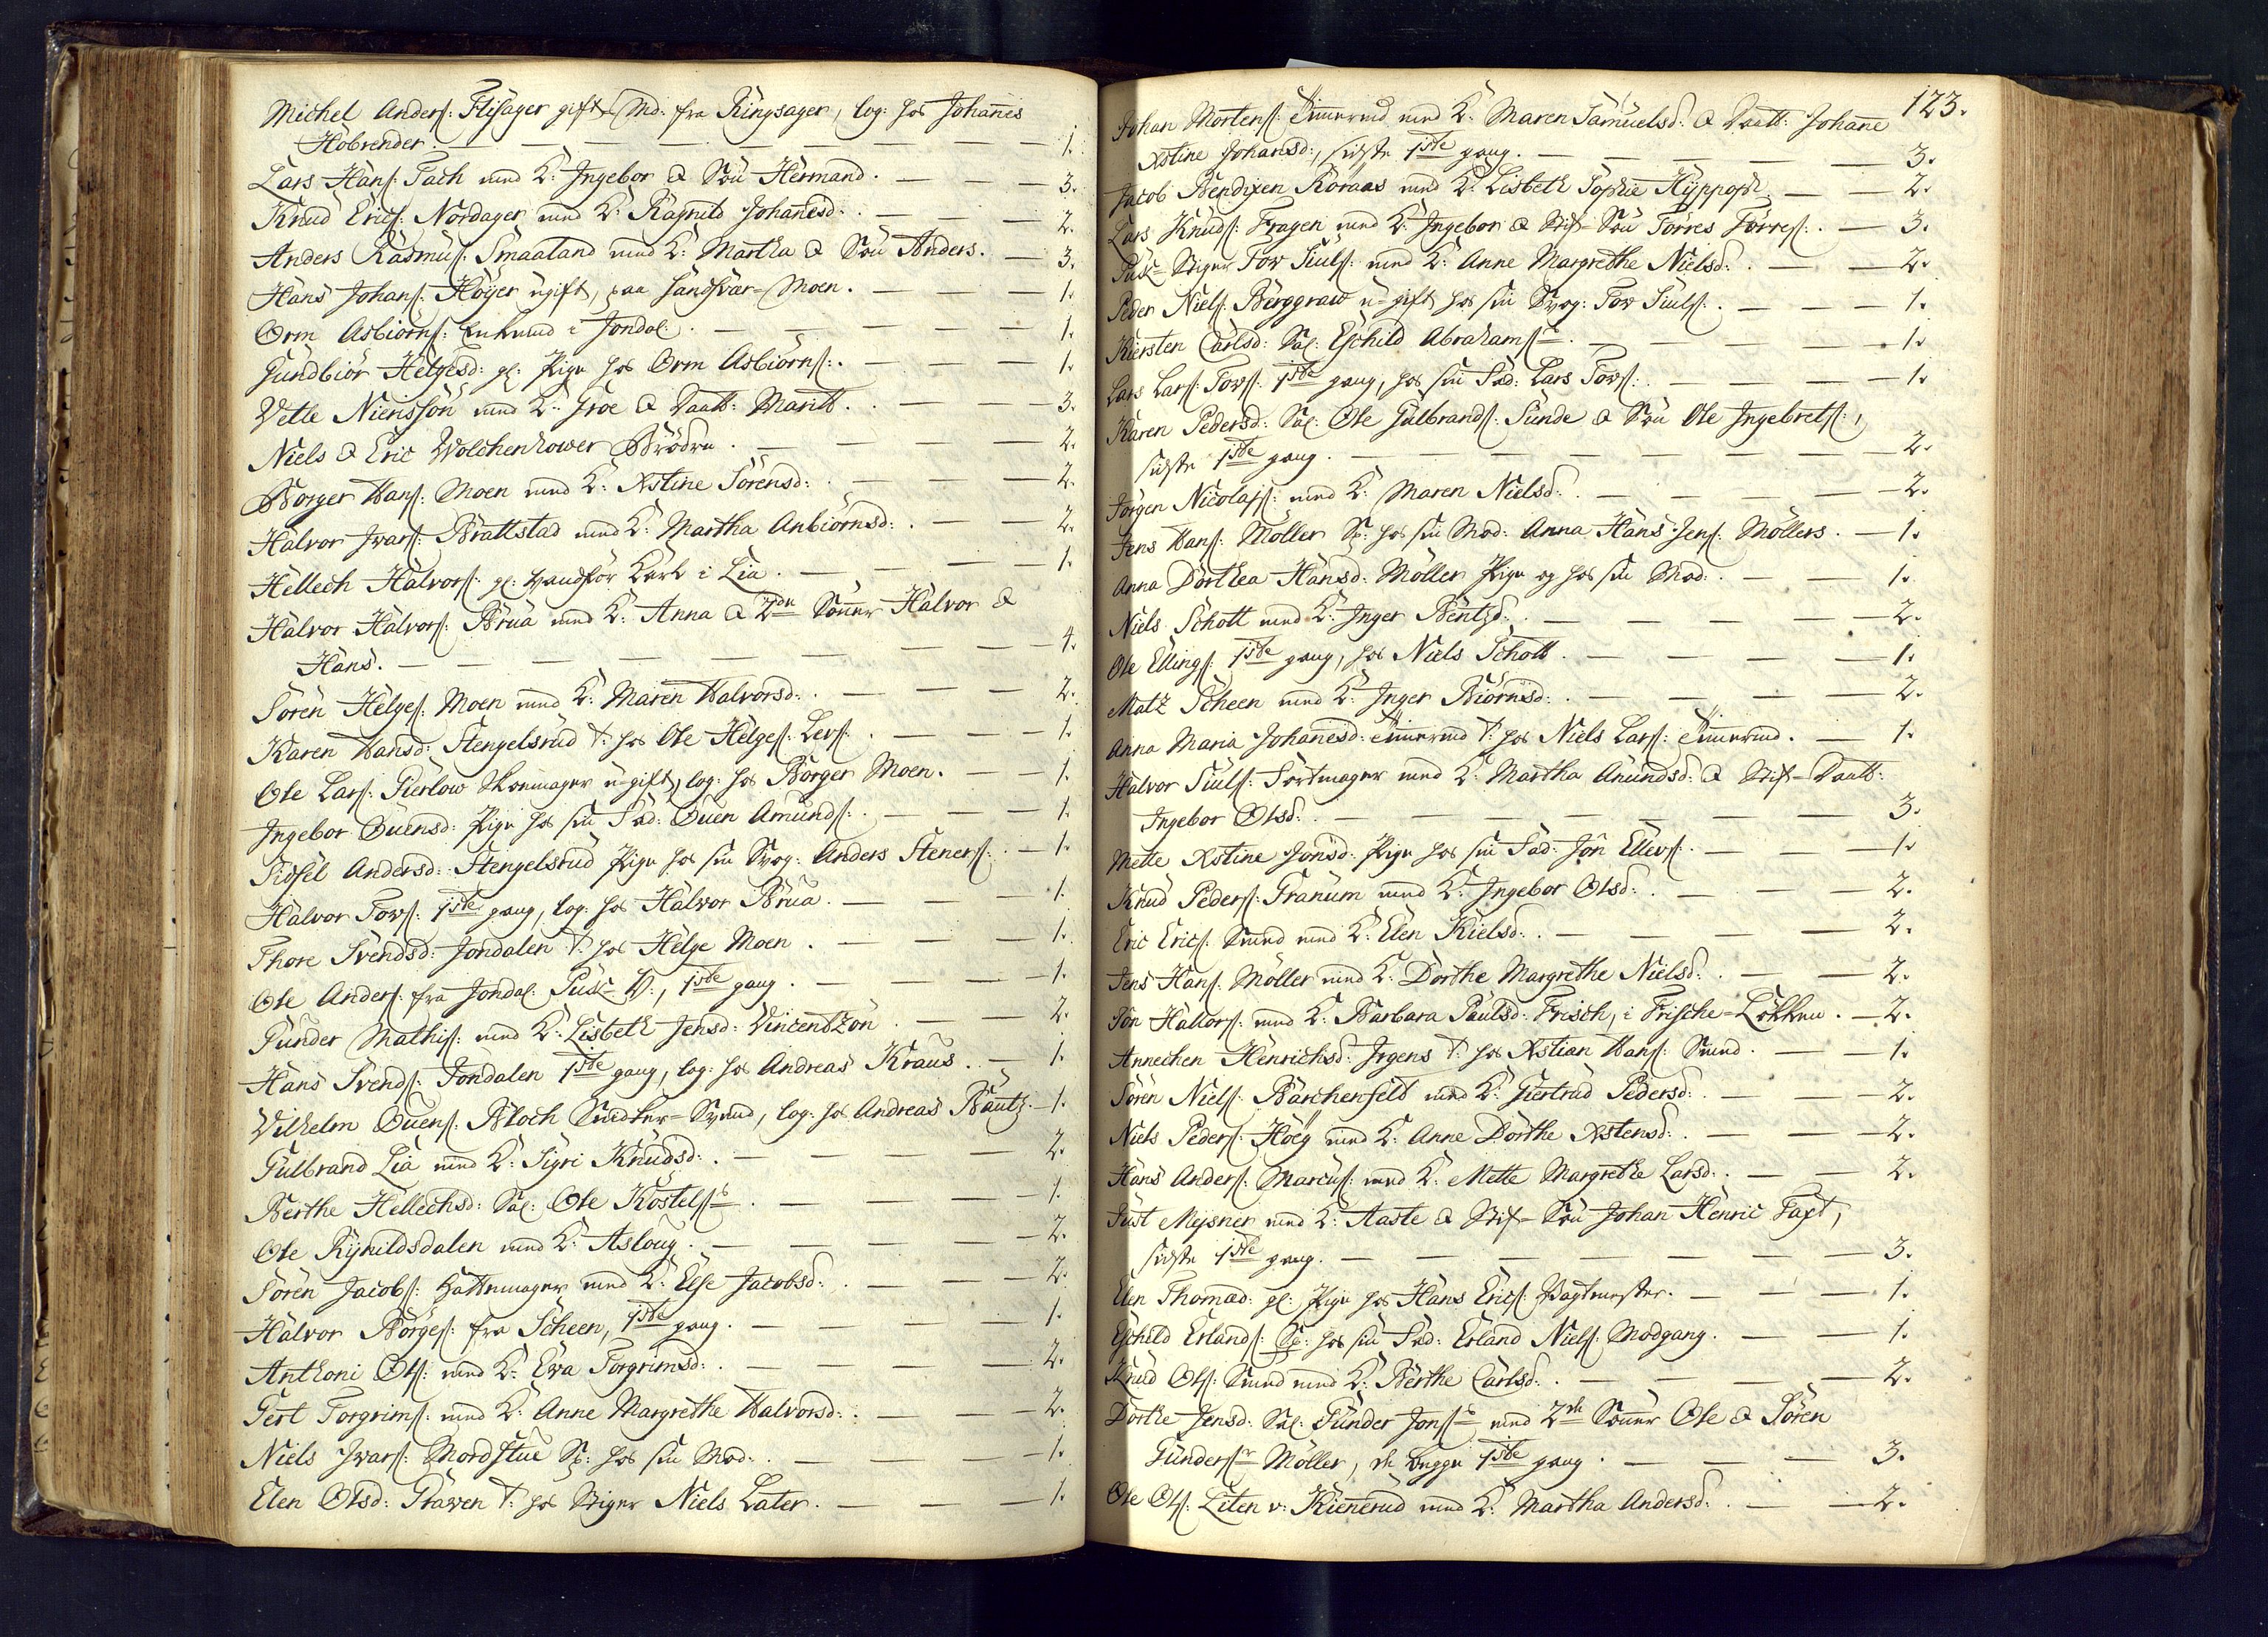 Michel Anders: Flisager gift Md: fra Ringsager, log: hos Johanes
Hobrender. — 1.
Lars Hans: Fach med K: Ingebor & Søn Hermand. — 3.
Knud Erics: Nordager med K: Ragnild Johanesd: — 2.
Anders Rasmus: Smaaland med K: Martha & Søn Anders. — 3.
Hans Johans: Höyer ugift, paa Sandsvär-Moen. — 1.
Orm Asbiörns: Enkemd i Jondal. — 1.
Gundbiör Helgesd: gl: Pige hos Orm Asbiörns: — 1.
Vetle Nierissön med K: Groe & Daatt: Maritt. — 3.
Niels & Eric Wolchenhower Brödre. — 2.
Borger Hans: Moen med K: Xstine Sörensd: — 2.
Halvor Iwars: Brattstad med K: Martha Anbiörnsd: — 2.
Hellech Halvors: gl: Vandför Karl i Lia. — 1.
Halvor Halvors: Brua med K: Anna & 2de Sönner Halvor &
Hans. — 4.
Sören Helges: Moen med K: Maren Halvorsd: — 2.
Karen Hansd: Stengelsrud T: hos Ole Helges: Lers: — 1.
Ole Lars: Gierlow Skoemager u-gift, log: hos Borger Moen. — 1.
Ingebor Ouensd: Pige hos sin Fad: Ouen Amunds: — 1.
Sidsel Andersd: Stengelsrud Pige hos sin Svog: Anders Steners: — 1.
Halvor Tows: 1ste gang, log: hos Halvor Brua. — 1.
Thore Svendsd: Jondalen T: hos Helge Moen. — 1.
Ole Anders: fra Jondal: Pusk-D:, 1ste gang. — 1.
Gunder Mathis: med K: Lisbeth Jensd: Vincentzön — 2.
Hans Svends: Jondalen 1ste gang, log: hos Andreas Kraus. — 1.
Vilhelm Ouens: Bloch Snedker-Svend, log: hos Andreas Bautz. — 1.
Gulbrand Lia med K: Sigri Knudsd: — 2.
Berthe Hellechsd: Sal: Ole Kostels: — 1.
Ole Rynildsdalen med K: Asloug. — 2.
Sören Jacobs: Hattemager med K: Else Jacobsd: — 2.
Halvor Börges: fra Scheen, 1ste gang. — 1.
Anthoni Ols: med K: Eva Torgrimsd: — 2.
Gert Torgrims: med K: Anne Margrethe Halvorsd: — 2.
Niels Iwars: Mordstue Sg: hos sin Mod: — 1.
Elen Olsd: Grawen T: hos Stiger Niels Later. — 1.
123.
Johan Mortens: Timermd med K: Maren Samuelsd: & Daatt: Johane
Xstine Johansd:, sidste 1ste gang. — 3.
Jacob Bendixen Röraas med K: Lisbeth Sophie Hyppoph — 2.
Lars Knuds: Fragen med K: Ingebor & Stif-Søn Torres Torres: — 3.
Pusk-Stiger Tov Siuls: med K: Anne Margrethe Nielsd: — 2.
Peder Niels: Berggraw u-gift hos sin Svog: Tov Siuls: — 1.
Kiersten Carlsd: Sal: Eschild Abrahams: — 1.
Lars Lars: Tows: 1ste gang, hos sin Fad: Lars Tows: — 1.
Karen Pedersd: Sal: Ole Gulbrands: Sunde & Søn Ole Ingebrets:,
sidste 1ste gang. — 2.
Jörgen Nicolajs: med K: Maren Nielsd: — 2.
Jens Hans: Möller Sg: hos sin Mod: Anna Hans Jens: Möllers. — 1.
Anna Dorthea Hansd: Möller Pige og hos sin Mod: — 1.
Niels Schott med K: Inger Bentzd: — 2.
Ole Ellings: 1ste gang, hos Niels Schott. — 1.
Matz Scheen med K: Inger Biörnsd: — 2.
Anna Maria Johanesd: Timermd T: hos Niels Lars: Timermd. — 1.
Halvor Siuls: Sortmager med K: Martha Anundsd: & Stif-Daatt:
Ingebor Olsd: — 3.
Mette Xstine Jonsd: Pige hos sin Fad: Jon Ellevs: — 1.
Knud Peders: Granum med K: Ingebor Olsd: — 2.
Eric Erics: Smed med K: Elen Kielsd: — 2.
Jens Hans: Möller med K: Dorthe Margrethe Nielsd: — 2.
Jon Hallors: med K: Barbara Paulsd: Frisch, i Frische-Løkken. — 2.
Annechen Henrichsd: Irgens T: hos Xstian Hans: Smed. — 1.
Sören Niels: Barchenfeld med K: Giertrud Pedersd: — 2.
Niels Peders: Höeg med K: Anne Dorthe Xstensd: — 2.
Hans Anders: Marcus: med K: Mette Margrethe Larsd: — 2.
Just Mejsner med K: Aaste & Stif-Søn Johan Henric Taxt,
sidste 1ste gang. — 3.
Elen Thomæd: gl: Pige hos Hans Erics: Vagtmester. — 1.
Eschild Erlands: Sg: hos sin Fad: Erland Niels: Modgang. — 1.
Knud Ols: Smed med K: Berthe Carlsd: — 2.
Dorthe Jensd: Sal: Gunder Jons: med 2de Sönner Ole & Sören
Gunders: Möller, de begge 1ste gang. — 3.
Ole Ols: Liten v: Kienerud med K: Martha Andersd: — 2.